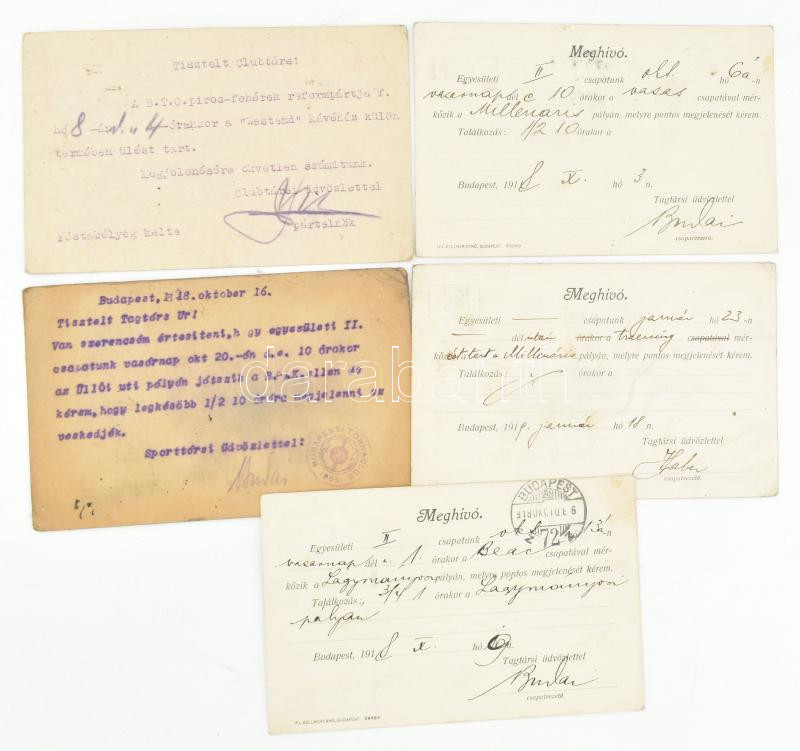 Tisztelt Clubtárs!
A B.T.C. piros-fehérek reformpártja f.
hó 8-án d.u. 4 órakkor a "Westend" kávéház külön
termében ülést tart.
Megjelenésére okvetlen számitunk.
Clubtársi üdvözlettel
pártelnök
Póstabélyeg kelte
Meghívó.
Egyesületi II csapatunk okt. hó 6á-n
vasárnap dél e 10 órakor a vasas csapatával mér-
kőzik a Millenáris pályán, melyre pontos megjelenését kérem.
Találkozás: 1/2 10 óra
Budapest, 1918 X. hó 3 n.
Tagtársi üdvözlettel
Budai
csapatvezető.
Budapest, 1918. oktober 16.
Tisztelt Tagtárs Ur!
Van szerencsém értesiteni, hogy egyesületi II.
csapatunk vasárnap okt 20.-án d.e. 10 órakor
az Üllői uti pályán játszik a ellen és
kérem, hogy legkésöbb 1/2 10 órára megjelenni sz
veskedjék.
Sporttársi üdvözlettel:
Budai
BUDAPESTI TORNA CLUB
Meghívó.
Egyesületi — csapatunk január hó 23-n
— délután órakor a treening csapatával mér-
kőzik a Millenáris pályán, melyre pontos megjelenését kérem.
Találkozás: órakor a
Budapest, 1919. január hó 18 n.
Tagtársi üdvözlettel
Haber
csapatvezető.
Meghívó.
Egyesületi II csapatunk okt. hó 13á-n
vasárnap dél u. 1. órakor a Beac csapatával mér-
kőzik a Lagymanyosi pályán, melyre pontos megjelenését kérem.
Találkozás: 3/4 1 órakor a Lagymanyosi
pályán
Budapest, 1918 X. hó 9
Tagtársi üdvözlettel
Budai
csapatvezető.
BUDAPEST
72
darabanth